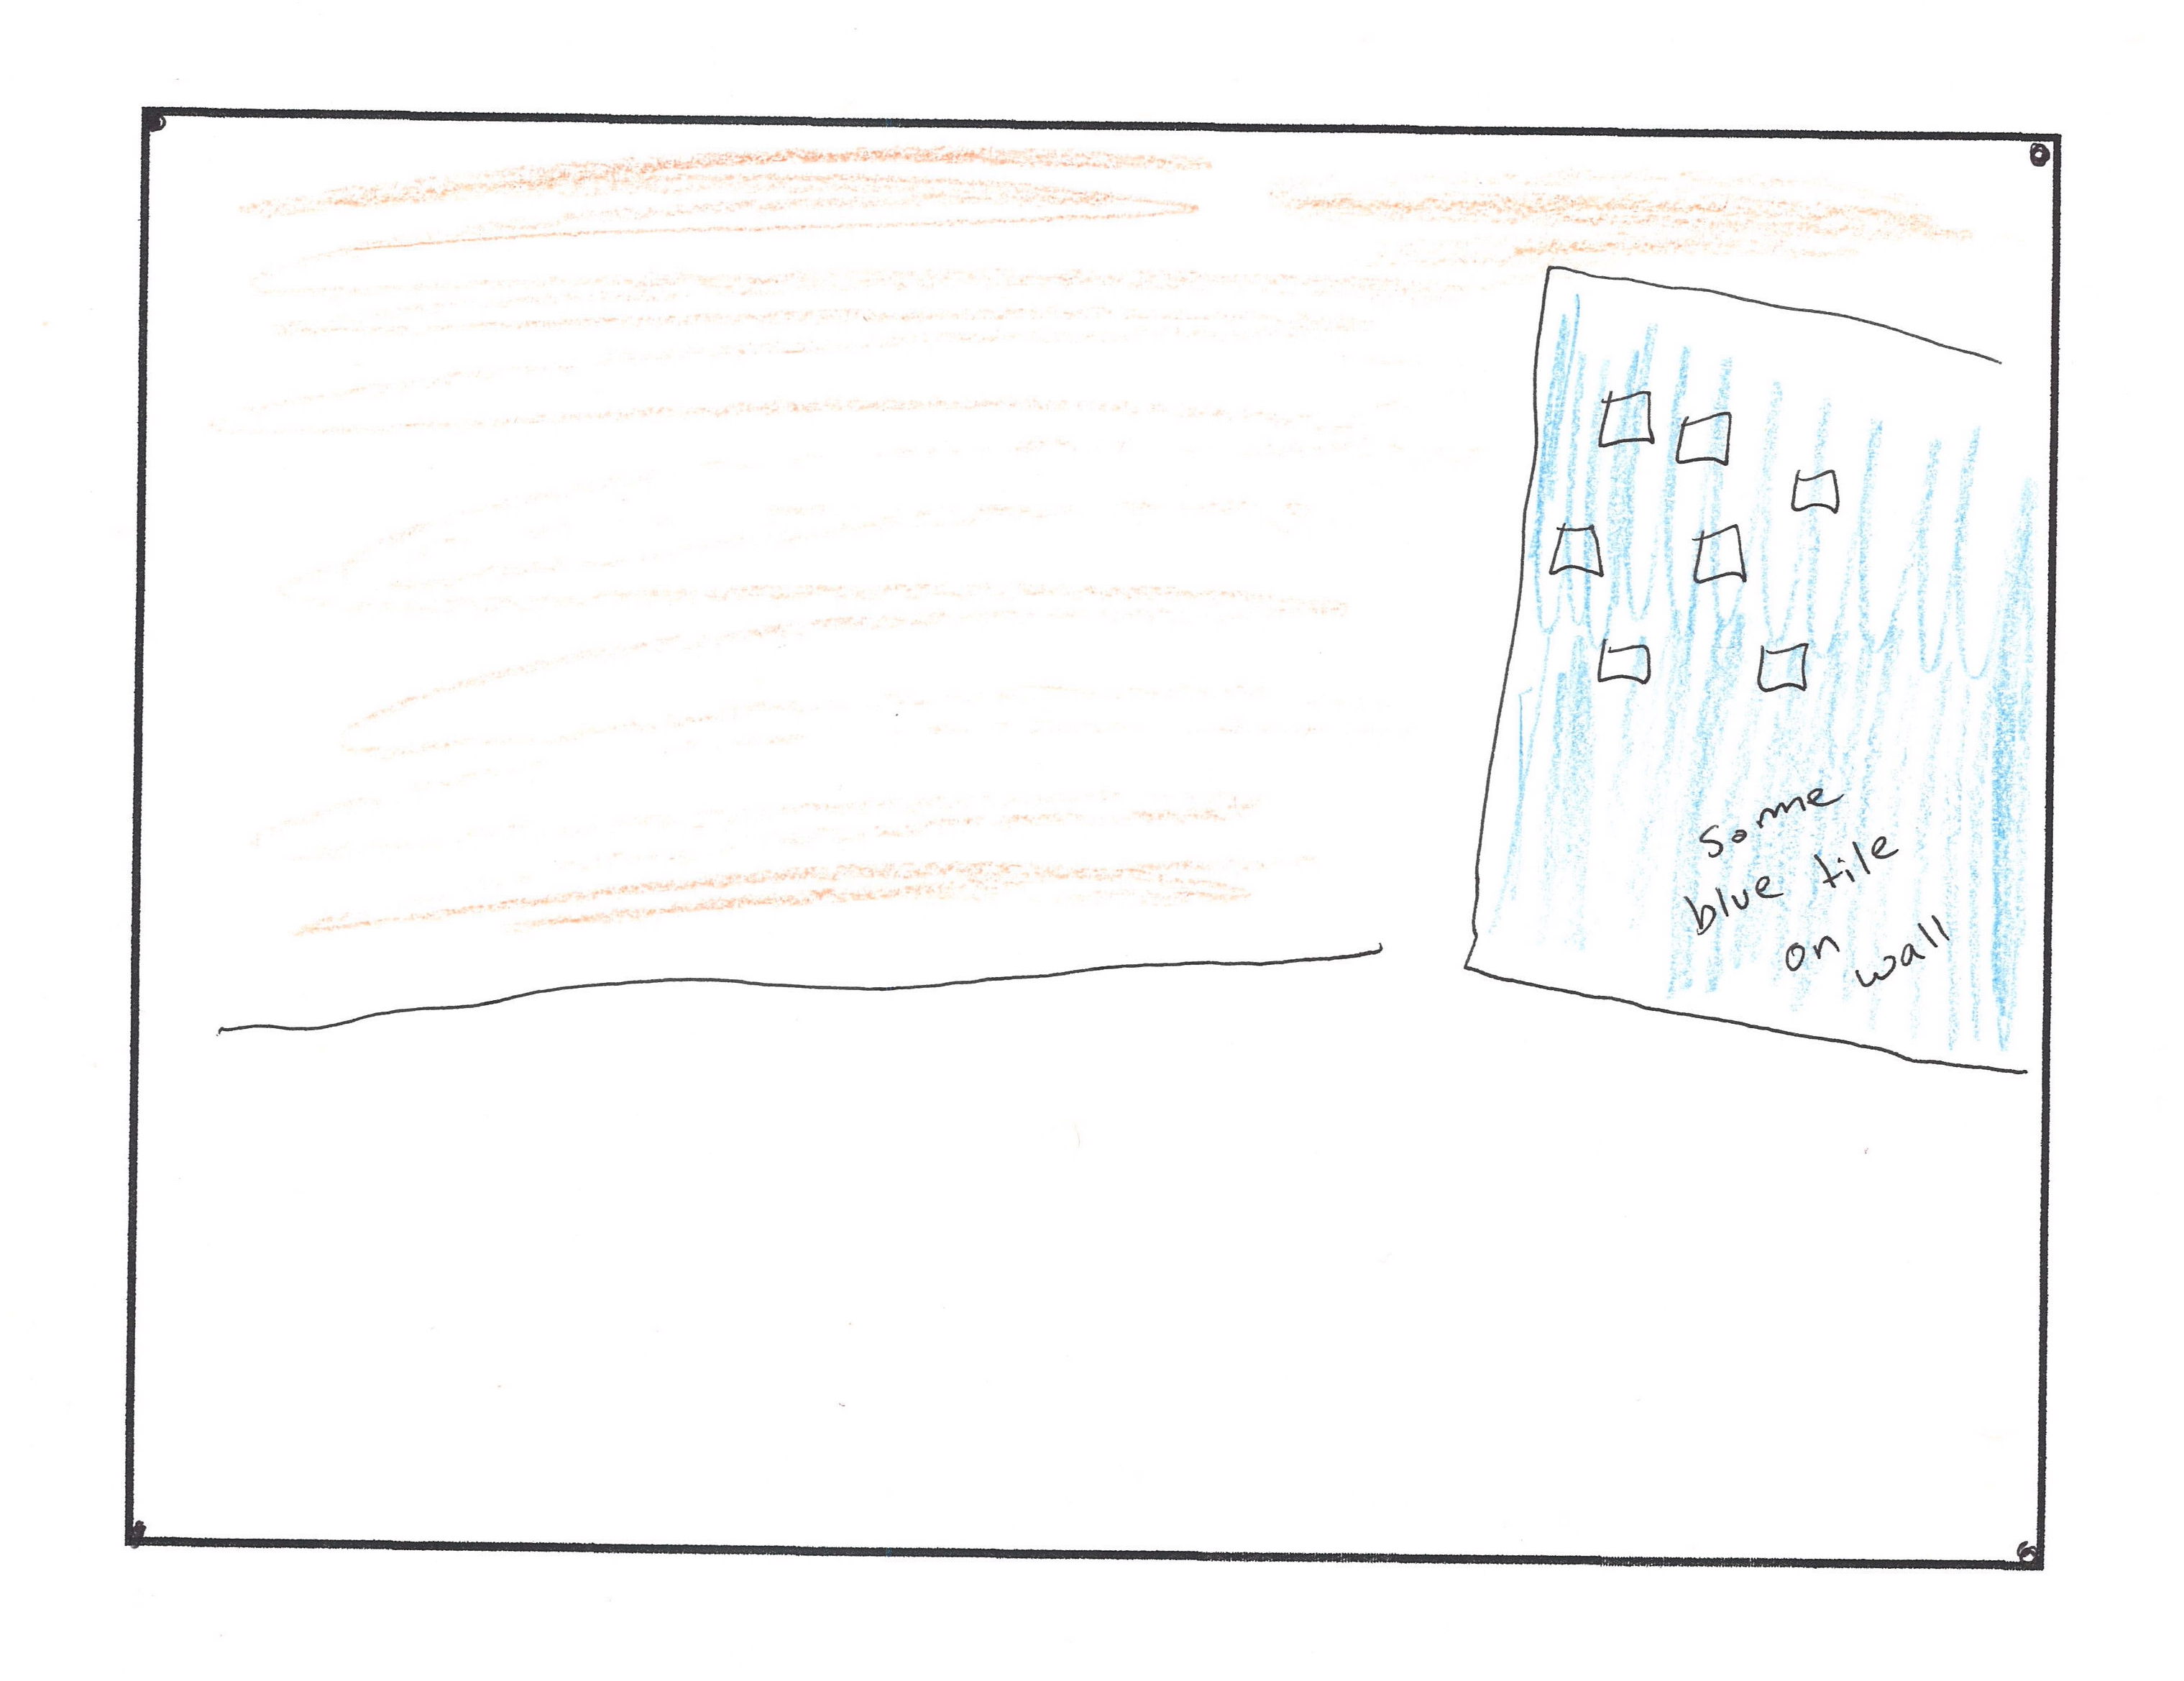 some
blue tile
on
wall